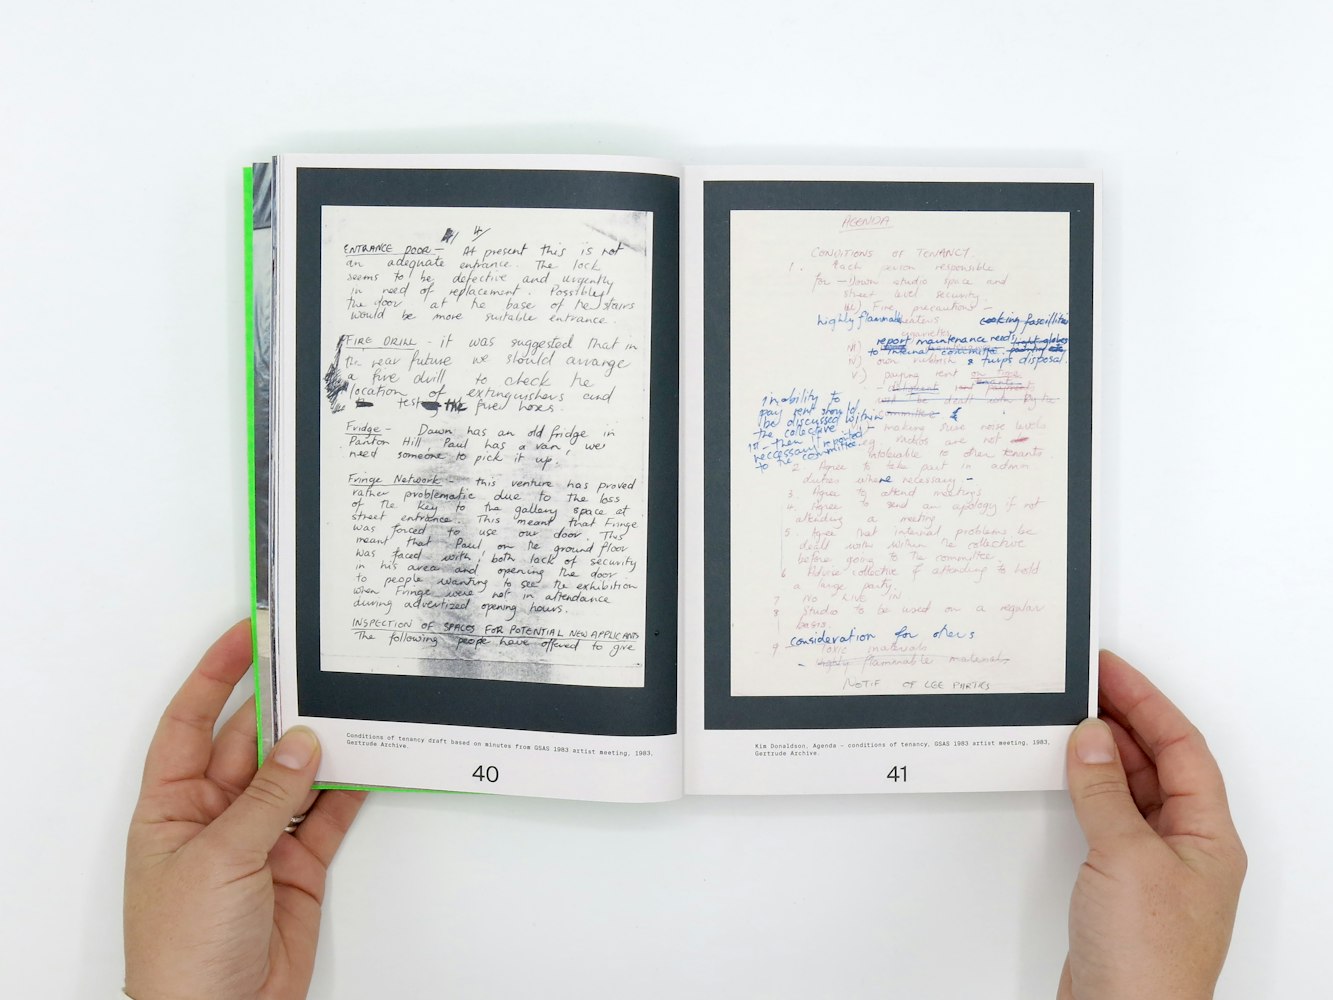 4/
ENTRANCE DOOR - At present this is not
an adequate entrance. The lock
seems to be defective and urgently
in need of replacement. Possibly
the door at the base of the stairs
would be more suitable entrance.
FIRE DRILL - it was suggested that in
the near future we should arrange
a fire drill to check the
location of extinguishers and
to test the fire hoses.
Fridge - Dawn has an old fridge in
Panton Hill Paul has a van, we
need someone to pick it up.
Fringe Network - this venture has proved
rather problematic due to the loss
of the key to the gallery space at
street entrance. This meant that Fringe
was forced to use our door. This
meant that Paul on the ground floor
was faced with both lack of security
in his area and opening the door
to people wanting to see the exhibition
when Fringe were not in attendance
during advertized opening hours.
INSPECTION OF SPACES FOR POTENTIAL NEW APPLICANTS
The following people have offered to give
Conditions of tenancy draft based on minutes from GSAS 1983 artist meeting, 1983,
Gertrude Archive.
40
AGENDA
CONDITIONS OF TENANCY.
1. Each person responsible
for - own studio space and
street level security.
Fire precautions -
highly flammable heaters cooking fascillities
report maintenance needs
to internal committe.
iv) own rubbish & turps disposal
v) paying rent on time
tenants
- rent payment
will be dealt with by the
committee
Inability to
pay rent should
be discussed within
the collective
1st - then if reported
neccessary
to the committee.
making sure noise levels
eg radios are not
intolerable to other tenants.
2. Agree to take part in admin.
duties where necessary -
3. Agree to attend meetings
4. Agree to send an apology if not
attending a meeting
5. Agree that internal problems be
dealt with within the collective
before going to the committee
6 Advise collective if attending to hold
a large party.
7 NO LIVE IN
8 Studio to be used on a regular
basis.
consideration for others
9 Toxic materials
- highly flammable materials
NOTIF OF LGE PARTIES
Kim Donaldson, Agenda - conditions of tenancy, GSAS 1983 artist meeting, 1983,
Gertrude Archive.
41